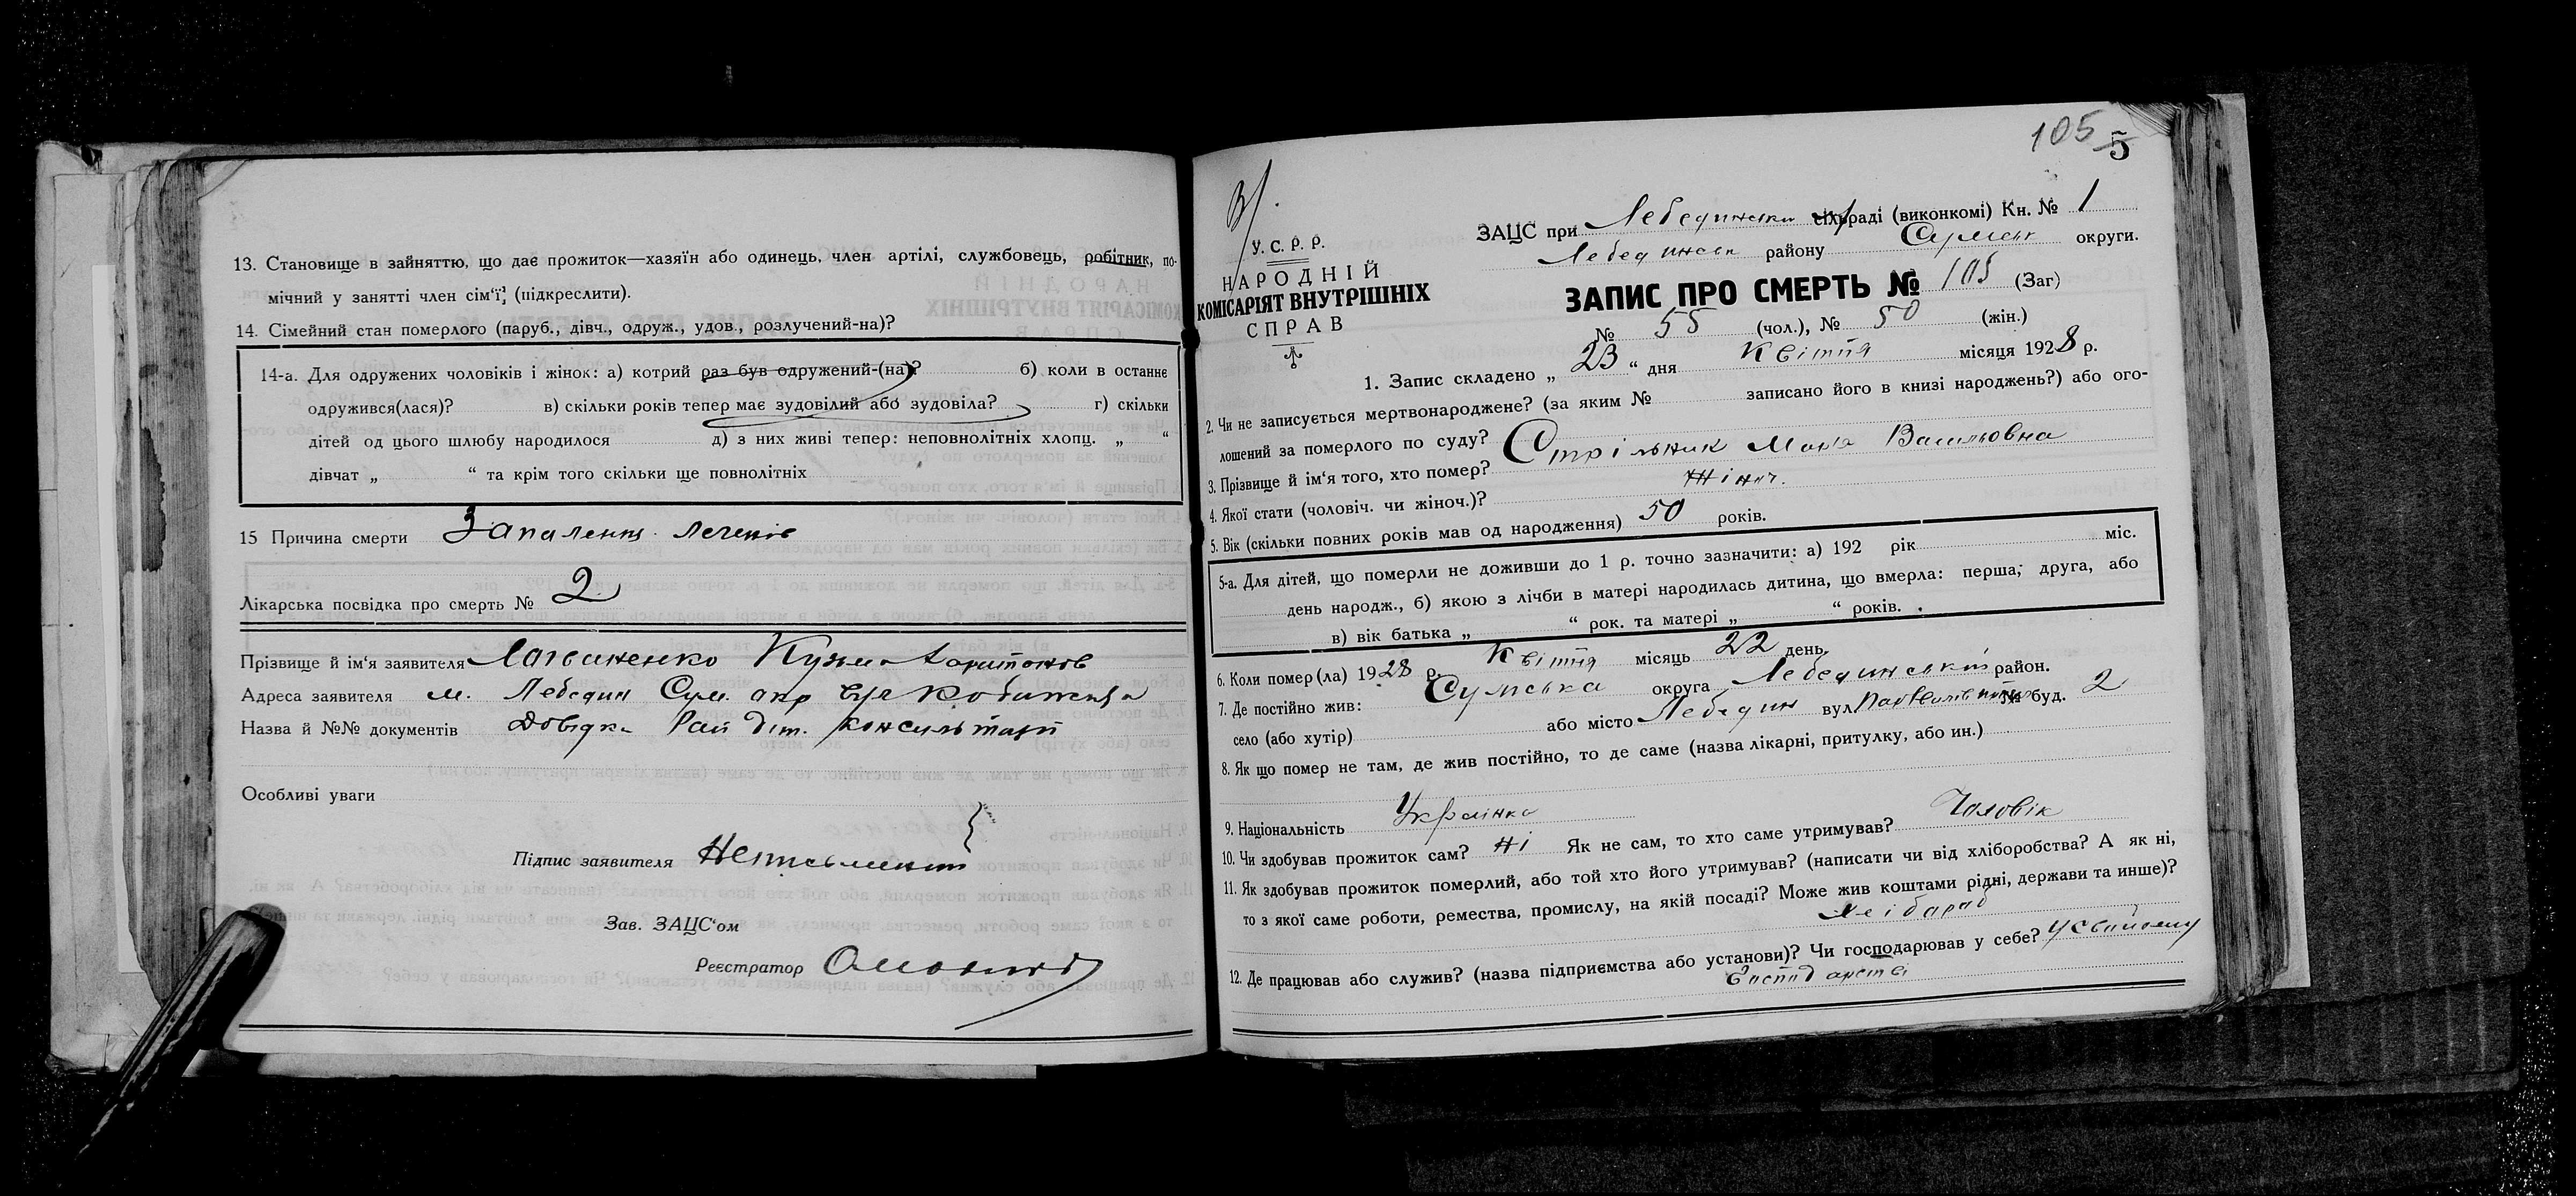 13. Становище в зайняттю, що дає прожиток—хазяїн або одинець, член артілі, службовець, робітник, по-
мічний у занятті член сім‘ї, (підкреслити).
14. Сімейний стан померлого (паруб., дівч., одруж., удов., розлучений-на)?
14-а. Для одружених чоловіків і жінок: а) котрий раз був одружений-(на)? б) коли в останнє
одружився(лася)? в) скільки років тепер має зудовілий або зудовіла? г) скільки
дітей од цього шлюбу народилося д) з них живі тепер: неповнолітніх хлопц. „ “
дівчат „ “ та крім того скільки ще повнолітніх
15 Причина смерти Запалення легенів
Лікарська посвідка про смерть № 2
Прізвище й ім‘я заявителя Кузьма Харитонов
Адреса заявителя м. Лебедин Сум. окр вул
Назва й №№ документів Довідка Рай дит. консультації
Особливі уваги
Підпис заявителя Неписьменний
Зав. ЗАЦС‘ом
Реєстратор
105 5
У. С. Р. Р.
НАРОДНІЙ
КОМІСАРІЯТ ВНУТРІШНІХ
СПРАВ
ЗАЦС при Лебединськи сільраді (виконкомі) Кн. № 1
Лебединськ району Сумськ округи.
ЗАПИС ПРО СМЕРТЬ № 105 (Заг)
№ 55 (чол.), № 50 (жін.)
1. Запис складено „ 23 “ дня Квітня місяця 1928 р.
2. Чи не записується мертвонароджене? (за яким № записано його в книзі народжень?) або ого-
лошений за померлого по суду?
3. Прізвище й ім‘я того, хто помер? Стрільник Марія Васильовна
4. Якої стати (чоловіч. чи жіноч.)? Жіноч.
5. Вік (скільки повних років мав од народження) 50 років.
5-а. Для дітей, що померли не доживши до 1 р. точно зазначити: а) 192 рік міс.
день народж., б) якою з лічби в матері народилась дитина, що вмерла: перша, друга, або
в) вік батька „ “ рок. та матері „ “ років.
6. Коли помер(ла) 1928 р. Квітня місяць 22 день.
7. Де постійно жив: Сумська округа Лебединський район.
село (або хутір) або місто Лебедин вул № буд. 2
8. Як що помер не там, де жив постійно, то де саме (назва лікарні, притулку, або ин.)
9. Національність Українка
10. Чи здобував прожиток сам? Ні Як не сам, то хто саме утримував? Чоловік
11. Як здобував прожиток померлий, або той хто його утримував? (написати чи від хліборобства? А як ні,
то з якої саме роботи, ремества, промислу, на якій посаді? Може жив коштами рідні, держави та инше)?
12. Де працював або служив? (назва підприємства або установи)? Чи господарював у себе? У свойому
Господарстві